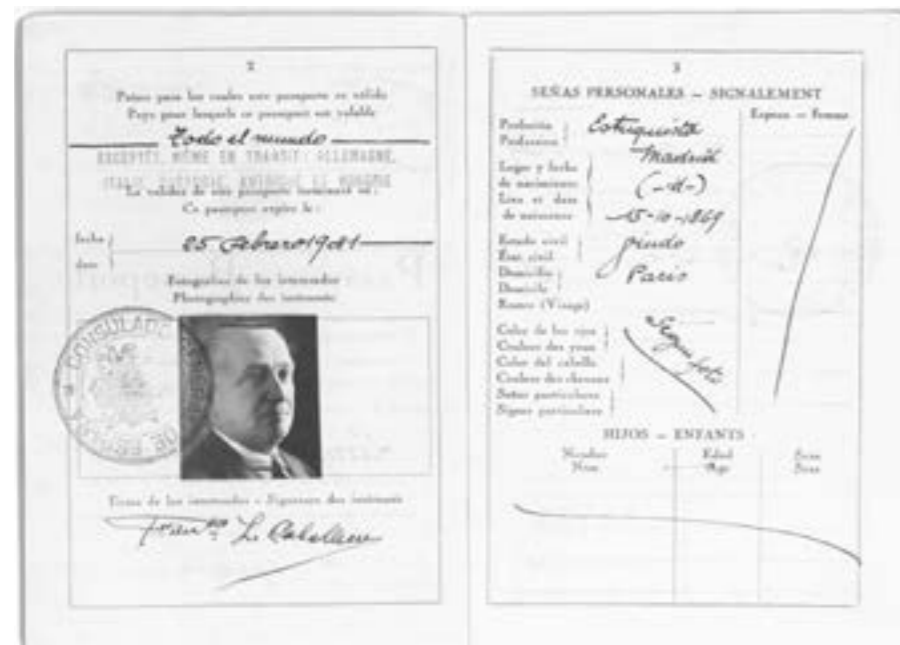 2
Países para los cuales este pasaporte es válido
Pays pour lesquels ce passeport est valable
Todo el mundo
EXCEPTÉ, MÊME EN TRANSIT: ALLEMAGNE,
ITALIE, AUTRICHE ET HONGRIE
La validez de este pasaporte terminará el:
Ce passeport expire le:
fecha
date
25 Febrero 1941
Fotografías de los interesados
Photographies des intéressés
CONSULADO DE
Firma de los interesados - Signature des intéressés
Franco L. Caballero
3
SEÑAS PERSONALES — SIGNALEMENT
Esposa — Femme
Profesión
Profession
Estuquista
Lugar y fecha
de nacimiento
Lieu et date
de naissance
Madrid
(-d-)
15-10-1869
Estado civil
État civil
viudo
Domicilio
Domicile
Paris
Rostro (Visage)
Color de los ojos
Couleur des yeux
Color del cabello
Couleur des cheveux
Señas particulares
Signes particuliers
Según foto
HIJOS — ENFANTS
Nombre
Nom
Edad
Age
Sexo
Sexe